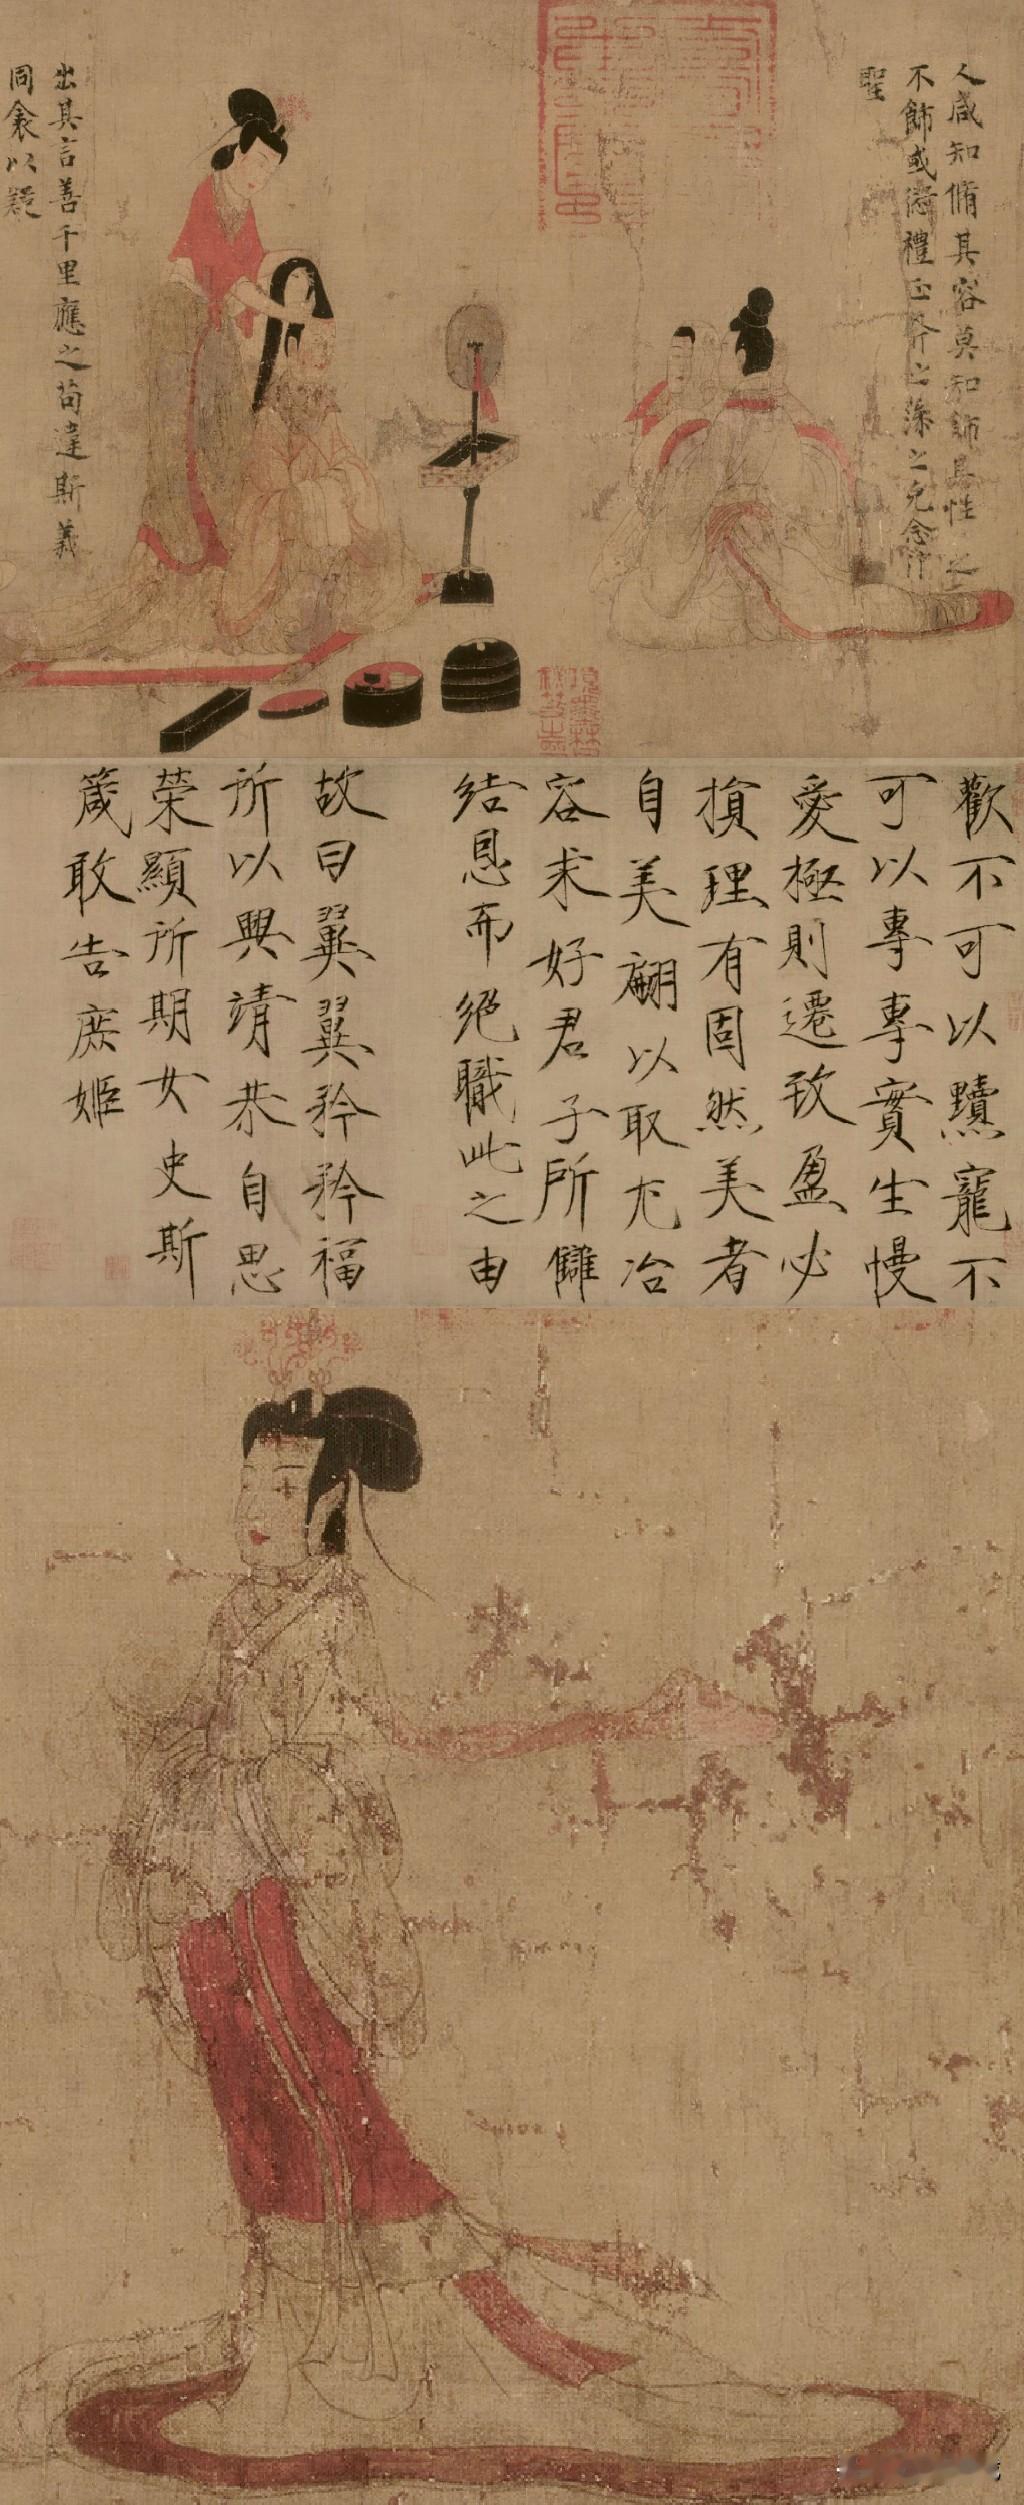 人咸知脩其容莫知飾其性之
不飾或愆禮正斧之藻之克念作
聖
出其言善千里應之苟違斯義
同衾以疑
歡不可以黷寵不
可以專專實生慢
愛極則遷致盈必
損理有固然美者
自美翩以取尤冶
容求好君子所讎
結恩而絕職此之由
故曰翼翼矜矜福
所以興靖恭自思
榮顯所期女史斯
箴敢告庶姬